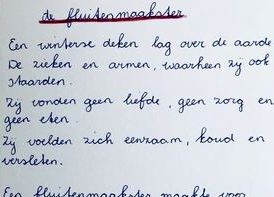 de fluitenmaakster
Een winterse deken lag over de aarde
De zieken en armen, waarheen zij ook
staarden.
Zij vonden geen liefde, geen zorg en
geen eten.
Zij voelden zich eenzaam, koud en
versleten.
Een fluitenmaakster maakte voor